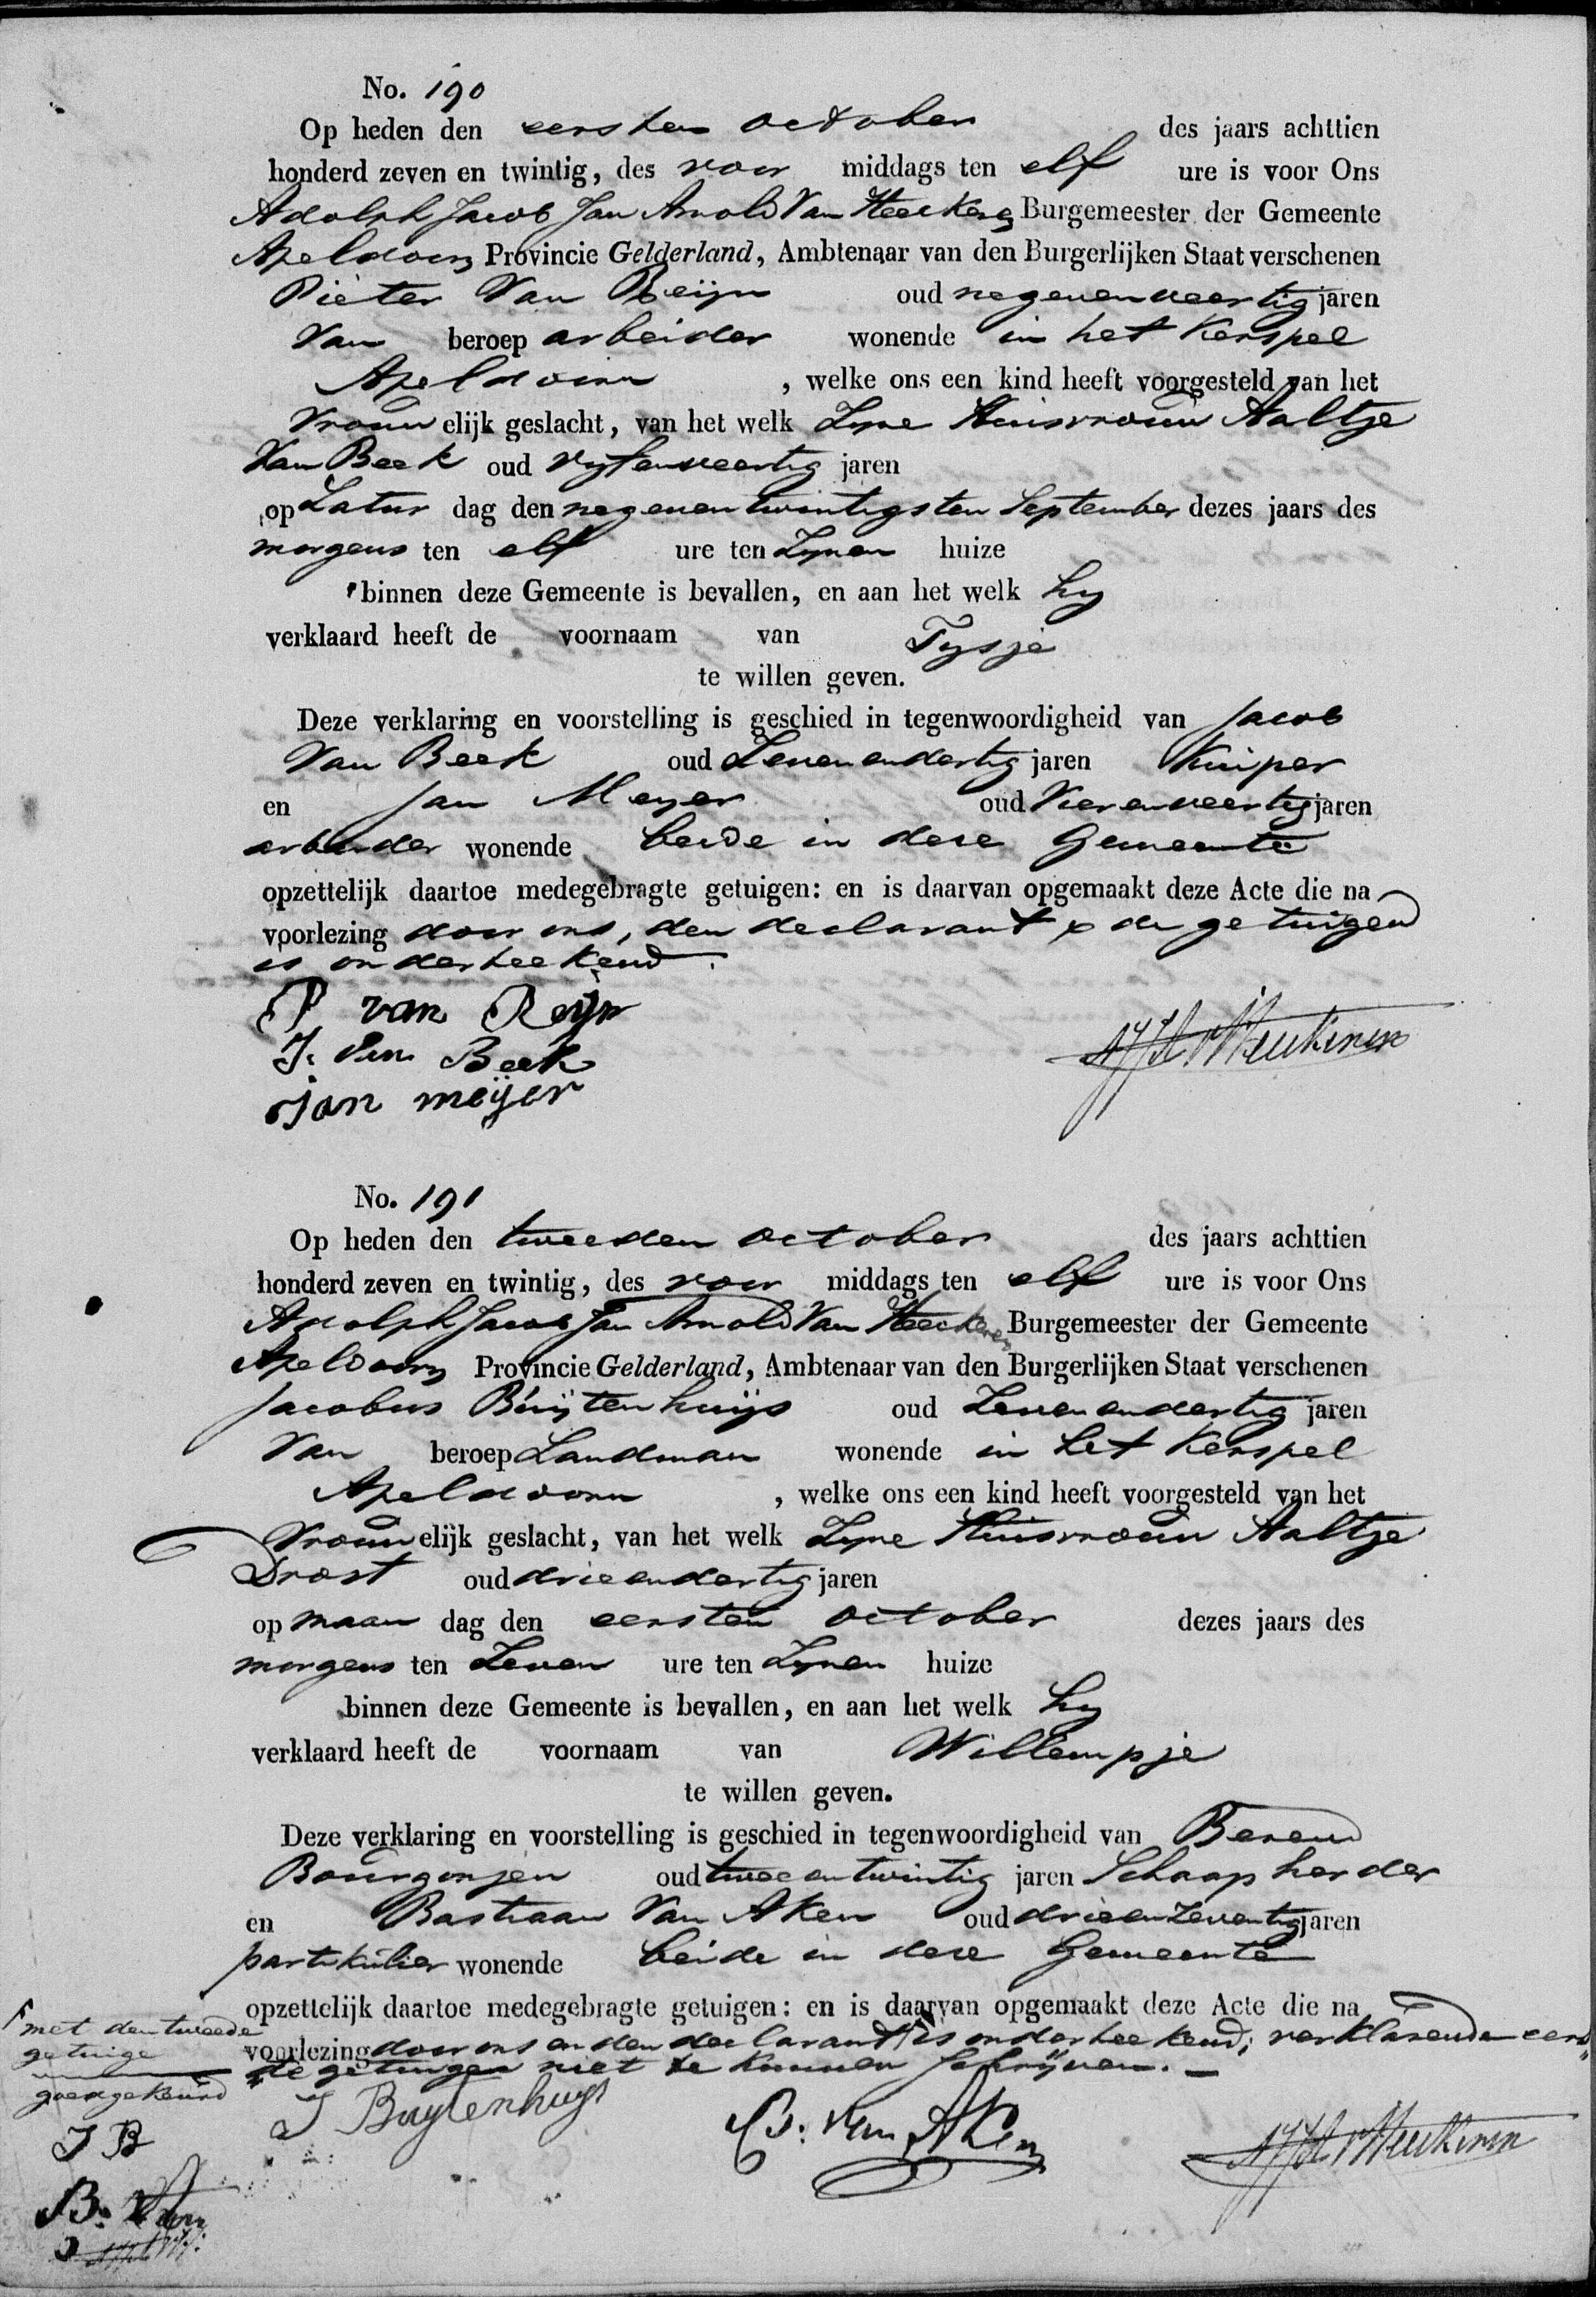 No. 190
Op heden den eersten october des jaars achttien
honderd zeven en twintig, des voor middags ten elf ure is voor Ons
Adolph Jacob Jan Arnold Van Heeckeren Burgemeester der Gemeente
Apeldoorn Provincie Gelderland, Ambtenaar van den Burgerlijken Staat verschenen
Pieter Van Reijn oud negenenveertig jaren
Van beroep arbeider wonende in het Kerspel
Apeldoorn , welke ons een kind heeft voorgesteld van het
Vrouwelijk geslacht, van het welk Zyne Huisvrouw Aaltje
Van Beek oud vyfenveertig jaren
op Zatur dag den negenentwintigsten September dezes jaars des
morgens ten elf ure ten Zynen huize
binnen deze Gemeente is bevallen, en aan het welk hy
verklaard heeft de voornaam van Tysje
te willen geven.
Deze verklaring en voorstelling is geschied in tegenwoordigheid van Jacob
Van Beek oud Zevenendertig jaren Kuiper
en Jan Meyer oud Vierenveertig jaren
arbeider wonende beide in deze Gemeente
opzettelijk daartoe medegebragte getuigen: en is daarvan opgemaakt deze Acte die na
voorlezing door ons, den declarant & de getuigen
is onderteekend.
P van Reijn
J. van Beek
Jan meijer
No. 191
Op heden den tweeden october des jaars achttien
honderd zeven en twintig, des voor middags ten elf ure is voor Ons
Adolph Jacob Jan Arnold Van Heeckeren Burgemeester der Gemeente
Apeldoorn Provincie Gelderland, Ambtenaar van den Burgerlijken Staat verschenen
Jacobus Buijtenhuijs oud Zevenendertig jaren
Van beroep Landman wonende in het Kerspel
Apeldoorn , welke ons een kind heeft voorgesteld van het
Vrouwelijk geslacht, van het welk Zyne Huisvrouw Aaltje
Drost oud drieendertig jaren
op maan dag den eersten october dezes jaars des
morgens ten Zeven ure ten Zynen huize
binnen deze Gemeente is bevallen, en aan het welk hy
verklaard heeft de voornaam van Willempje
te willen geven.
Deze verklaring en voorstelling is geschied in tegenwoordigheid van Berend
Bourgonjen oud tweeentwintig jaren Schaapherder
en Bastiaan Van Aken oud drieenzeventig jaren
partikulier wonende beide in deze Gemeente
opzettelijk daartoe medegebragte getuigen: en is daarvan opgemaakt deze Acte die na
voorlezing door ons en den declarant is onderteekend; verklarende eerst
de getuigen niet te kunnen schrijven.
met den tweede
getuige
goedgekeurd
J B
J Buytenhuys
B. van Aken